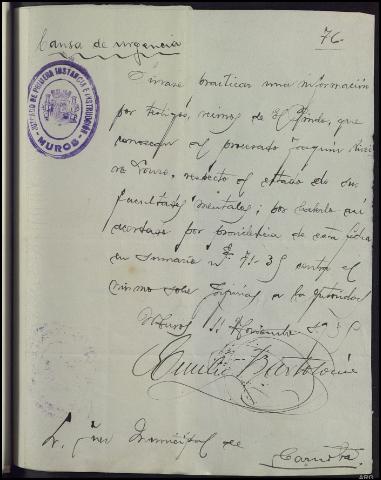 Causa de urgencia
76
JUZGADO DE PRIMERA INSTANCIA E INSTRUCCIÓN
MUROS
Sírvase practicar una información
por testigos, vecinos de El Pindo, que
conozcan al procesado Joaquín
Louro, respecto al estado de sus
facultades mentales; por haberlo así
acordado por providencia de esta fecha
en sumario nº 71-35 contra el
mismo sobre injurias a la Autoridad
Muros 11 Noviembre 1935
Emilio Bartolomé
Sr. Juez Municipal de
Carnota